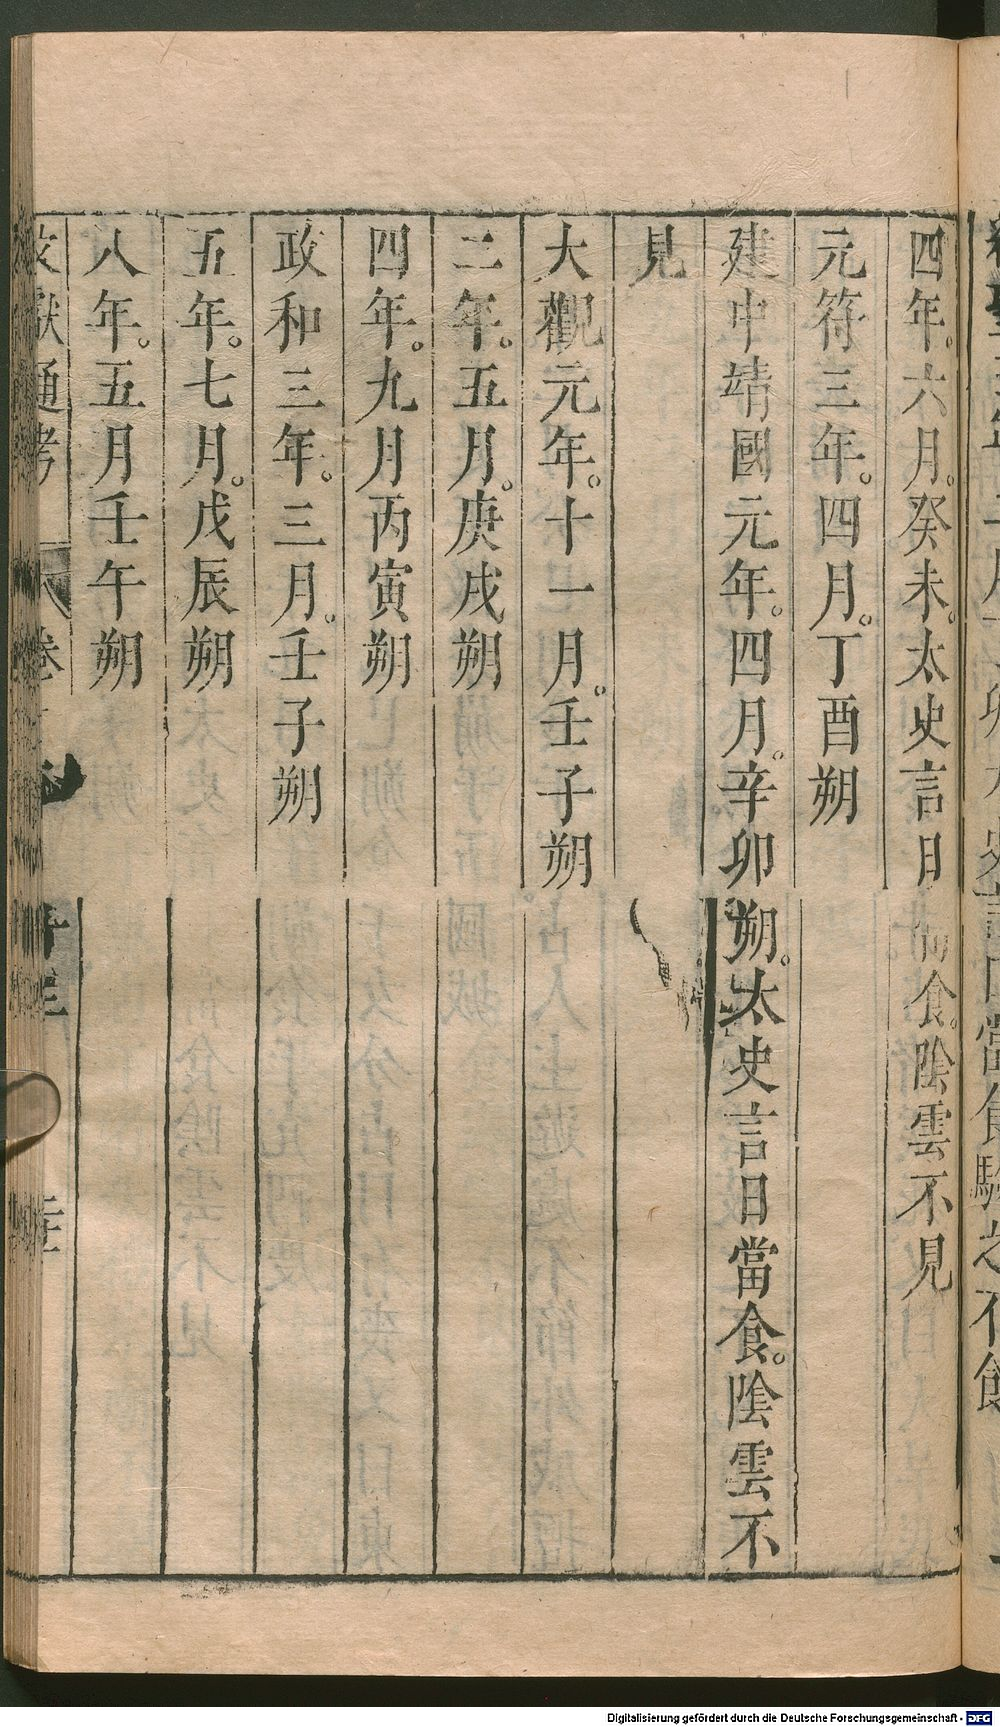 四年。六月。癸未。太史言日當食。陰雲不見
元符三年。四月。丁酉朔
建中靖國元年。四月。辛卯朔。太史言日當食。陰雲不
見
大觀元年。十一月。壬子朔
二年。五月。庚戌朔
四年。九月丙寅朔
政和三年。三月。壬子朔
五年。七月。戊辰朔
八年。五月壬午朔
文獻通考
卷二百
Digitalisierung gefördert durch die Deutsche Forschungsgemeinschaft - DFG